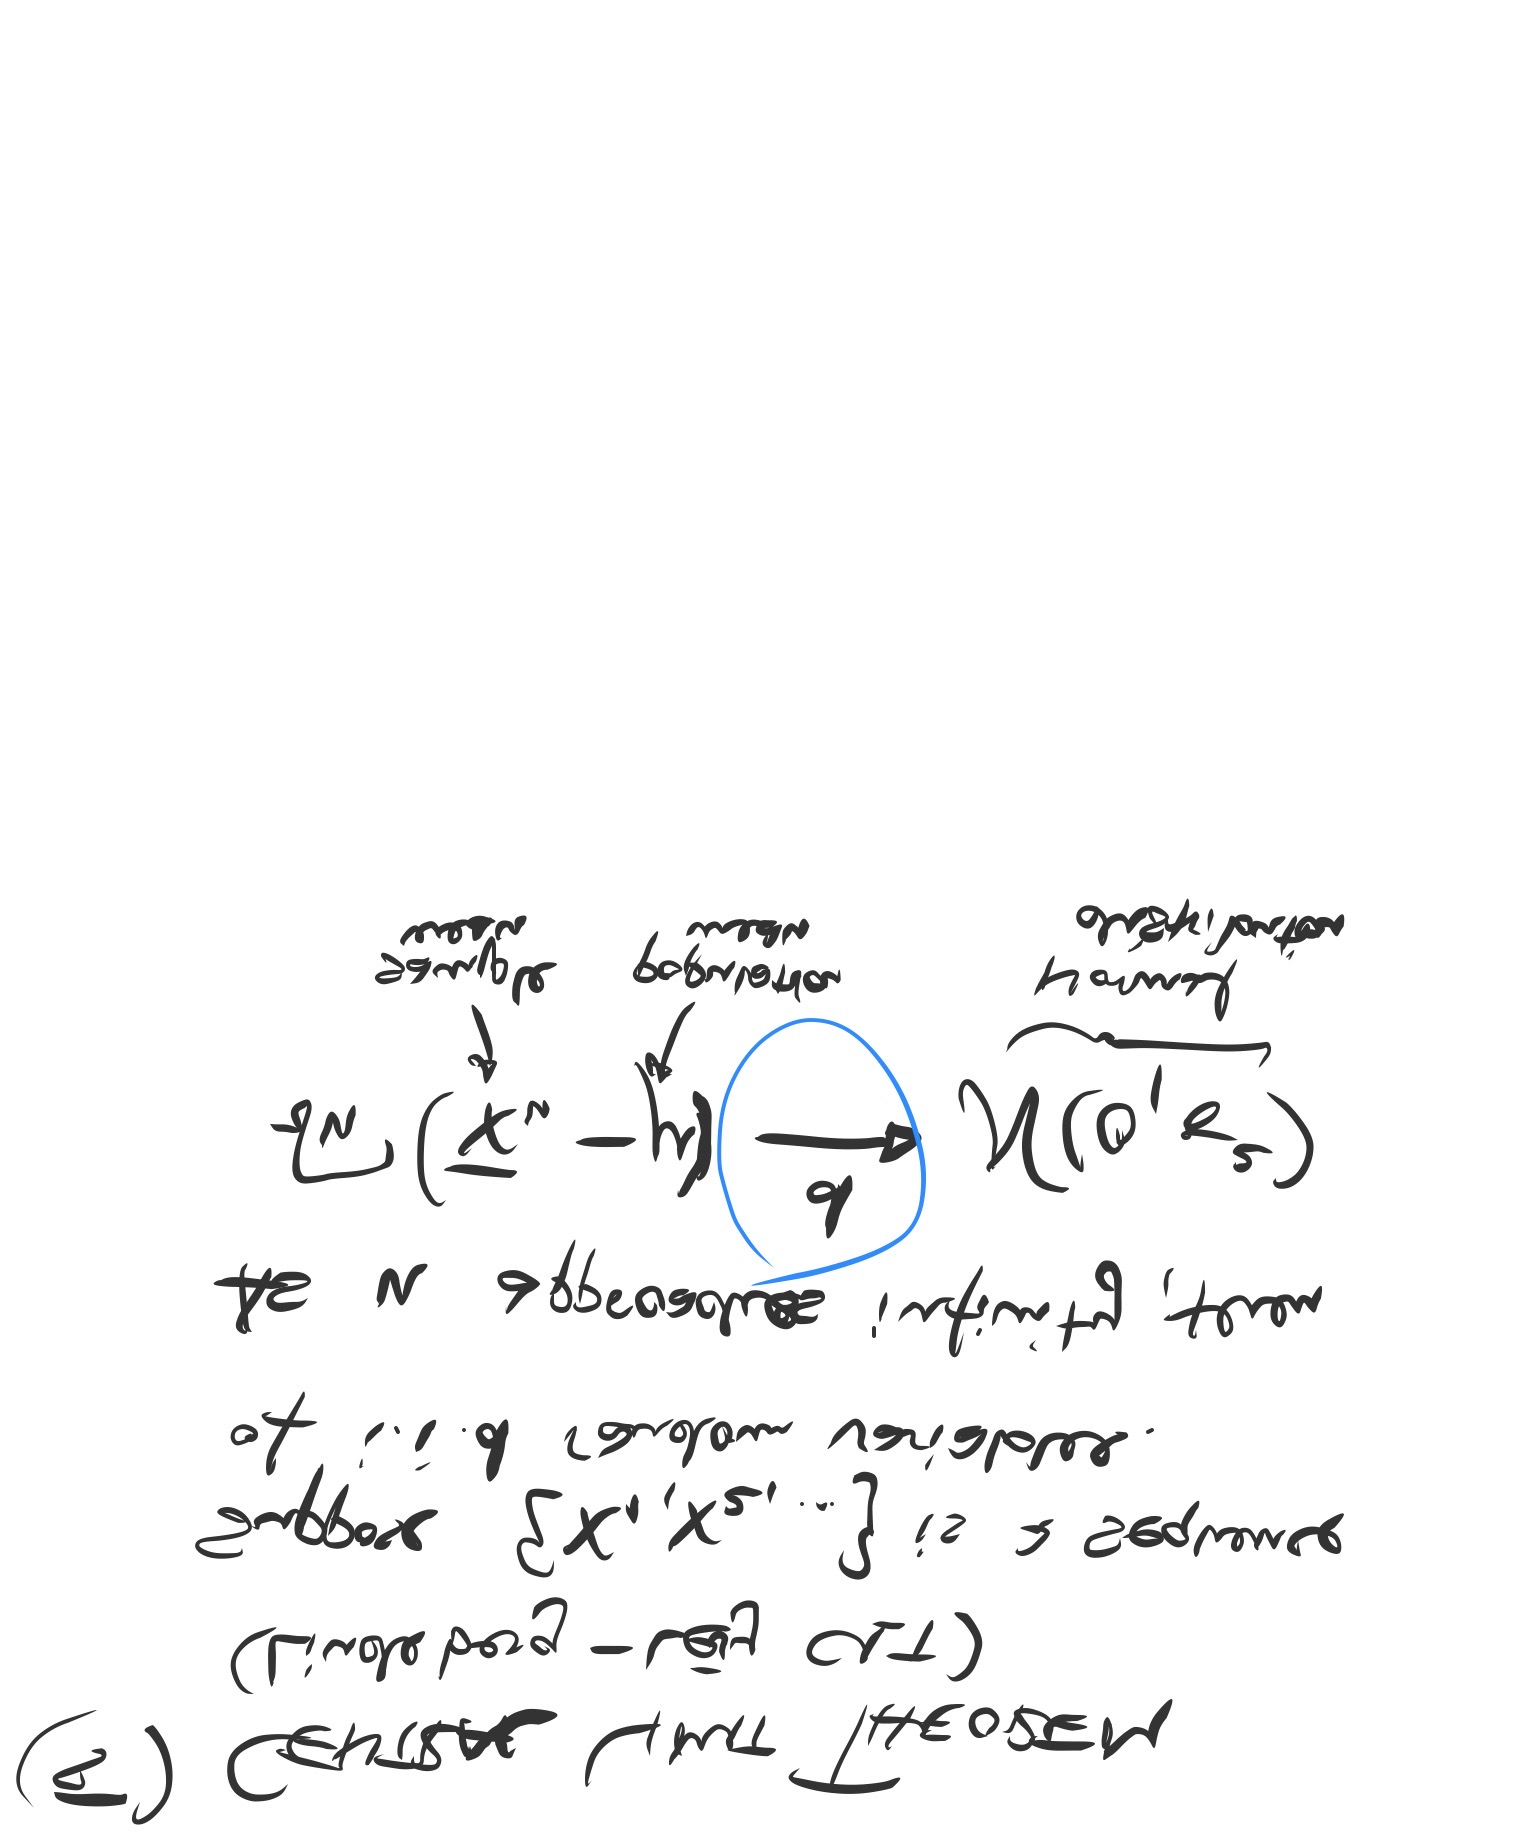 (5) CENTRAL LIMIT THEOREM
(Lindeberg-Lévy CLT)
Suppose {X1, X2, ...} is a sequence
of i.i.d random variables.
As n approaches infinity, then
√n (X̄n − μ) d→ N(0, σ²)
sample mean
population mean
Normal distribution